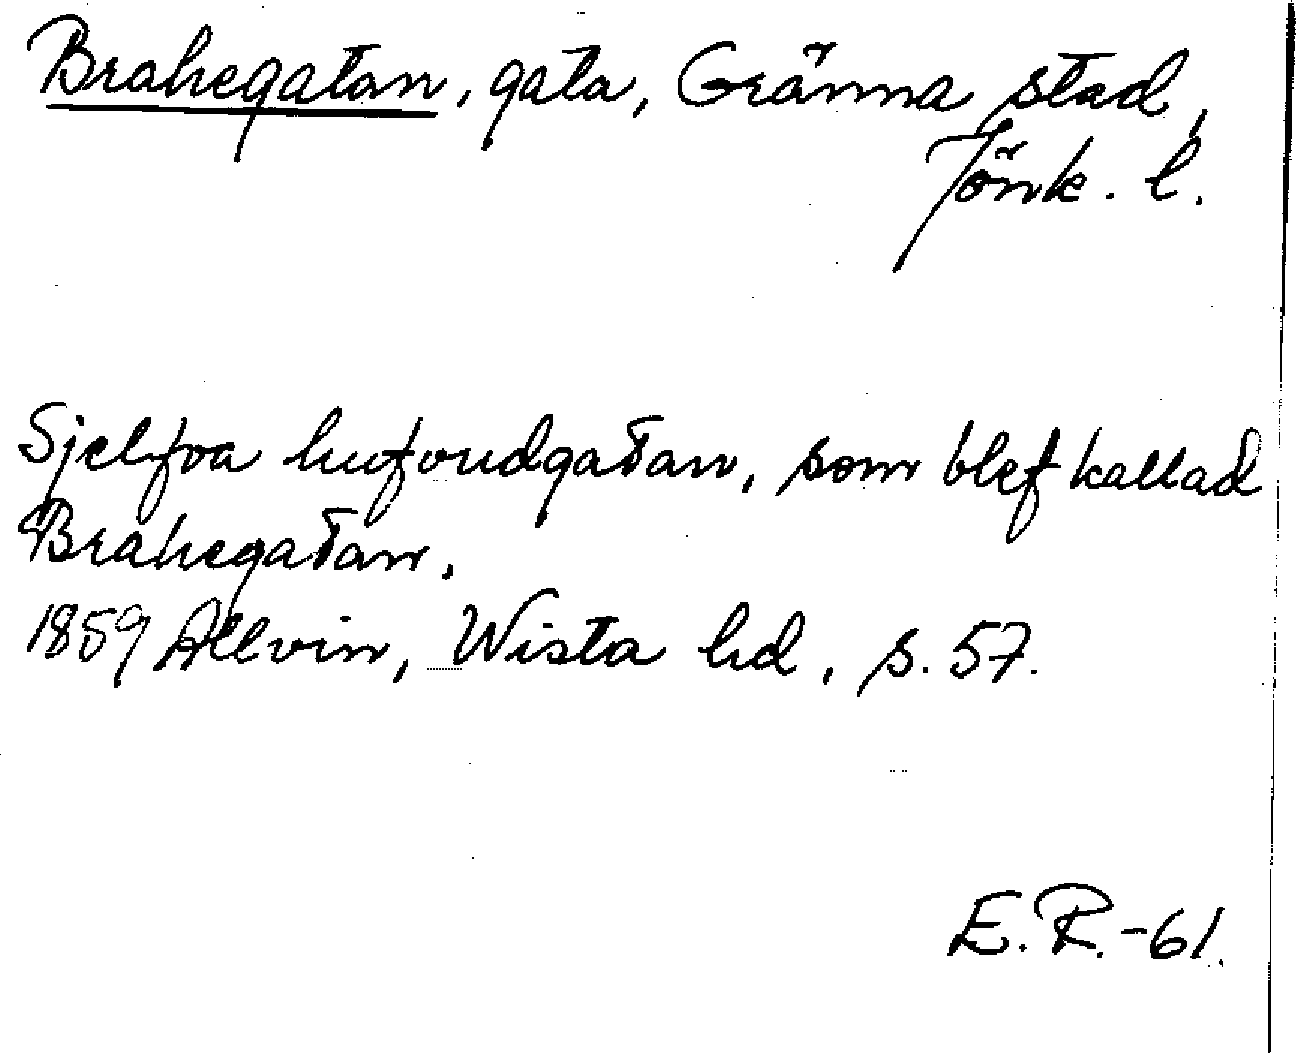 Brahegatan, gata, Gränna stad,
Jönk. l.
Sjelfva hufvudgatan, som blef kallad
Brahegatan.
1859 Allvin, Wista hd, s. 57.
E. R. -61.